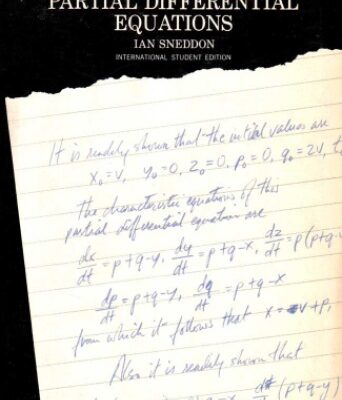 PARTIAL DIFFERENTIAL
EQUATIONS
IAN SNEDDON
INTERNATIONAL STUDENT EDITION
It is readily shown that the initial values are
x₀=v, y₀=0, z₀=0, p₀=0, q₀=2v, t₀
The characteristic equations of this
partial differential equation are
dx/dt = p+q-y, dy/dt = p+q-x, dz/dt = p(p+q-y
dp/dt = p+q-y, dq/dt = p+q-x
from which it follows that x = v+p,
Also it is readily shown that
(p+q-y)